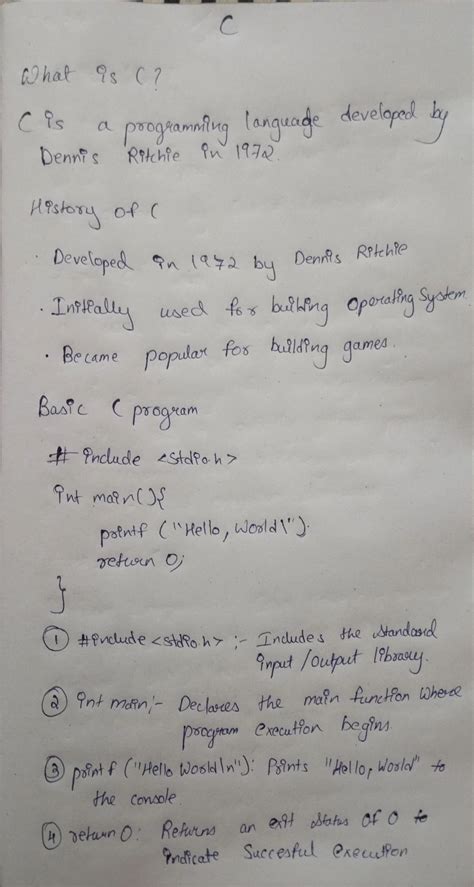 C
What is C?
C is a programming language developed by
Dennis Ritchie in 1972.
History of C
· Developed in 1972 by Dennis Ritchie
· Initially used for building Operating System
· Became popular for building games.
Basic C program
# include <stdio.h>
int main(){
printf ("Hello, World\").
return 0;
}
① #include <stdio.h> :- Includes the standard
input/output library.
② int main:- Declares the main function where
program execution begins.
③ printf ("Hello World\n"): Prints "Hello, World" to
the console.
④ return 0: Returns an exit status of 0 to
indicate Succesful execution